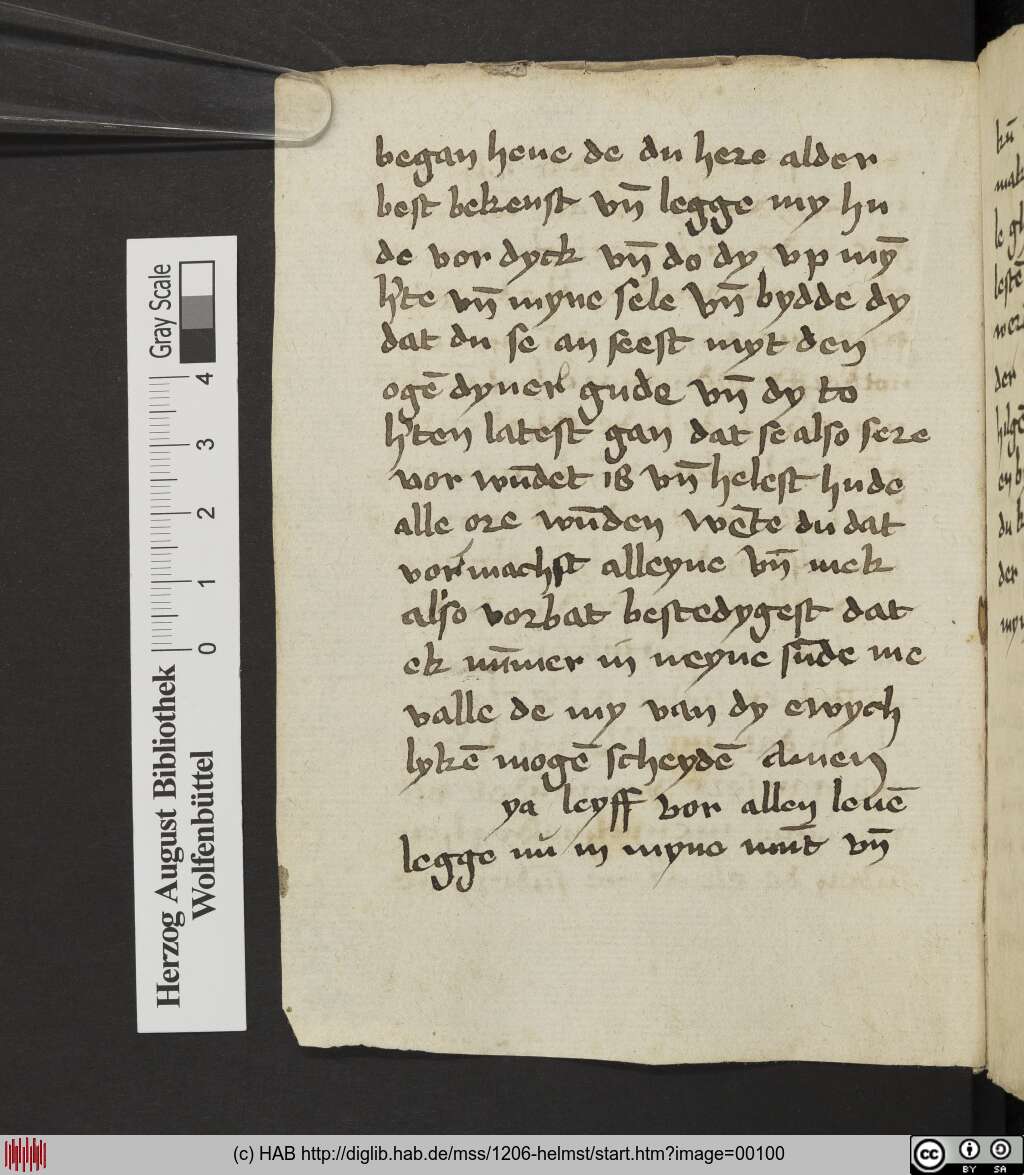 began heue de du here alder
best bekenst vn̄ legge my hn
de vor dyck vn̄ do dy vp mȳ
h̕te vn̄ myne sele vn̄ bydde dy
dat du se an seest myt den
ogē dyner gude vn̄ dy to
h̕ten latest gan dat se also sere
vor wūdet is vn̄ helest hude
alle ore wūden wēte du dat
vor machst alleyne vn̄ mek
also vorbat bestedygest dat
ek nūmer in neyne sūde me
valle de my van dy ewych
lykē mogē scheydē Amen
ya leyff vor allen leuē
legge nu in myne mūt vn̄
kū
mak
le gl
lestē
wer
der
hilgē
en b
du k
der
myn
Gray Scale
0 1 2 3 4
Herzog August Bibliothek
Wolfenbüttel
(c) HAB http://diglib.hab.de/mss/1206-helmst/start.htm?image=00100
cc BY SA